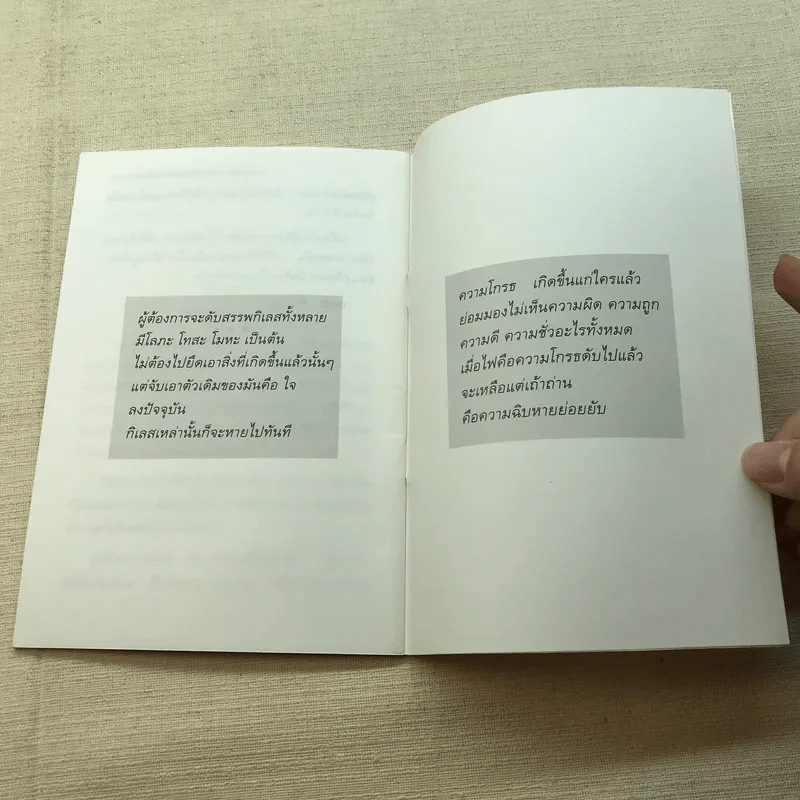 ผู้ต้องการจะดับสรรพกิเลสทั้งหลาย
มีโลภะ โทสะ โมหะ เป็นต้น
ไม่ต้องไปยึดเอาสิ่งที่เกิดขึ้นแล้วนั้นๆ
แต่จับเอาตัวเดิมของมันคือ ใจ
ลงปัจจุบัน
กิเลสเหล่านั้นก็จะหายไปทันที
ความโกรธ เกิดขึ้นแก่ใครแล้ว
ย่อมมองไม่เห็นความผิด ความถูก
ความดี ความชั่วอะไรทั้งหมด
เมื่อไฟคือความโกรธดับไปแล้ว
จะเหลือแต่เถ้าถ่าน
คือความฉิบหายย่อยยับ